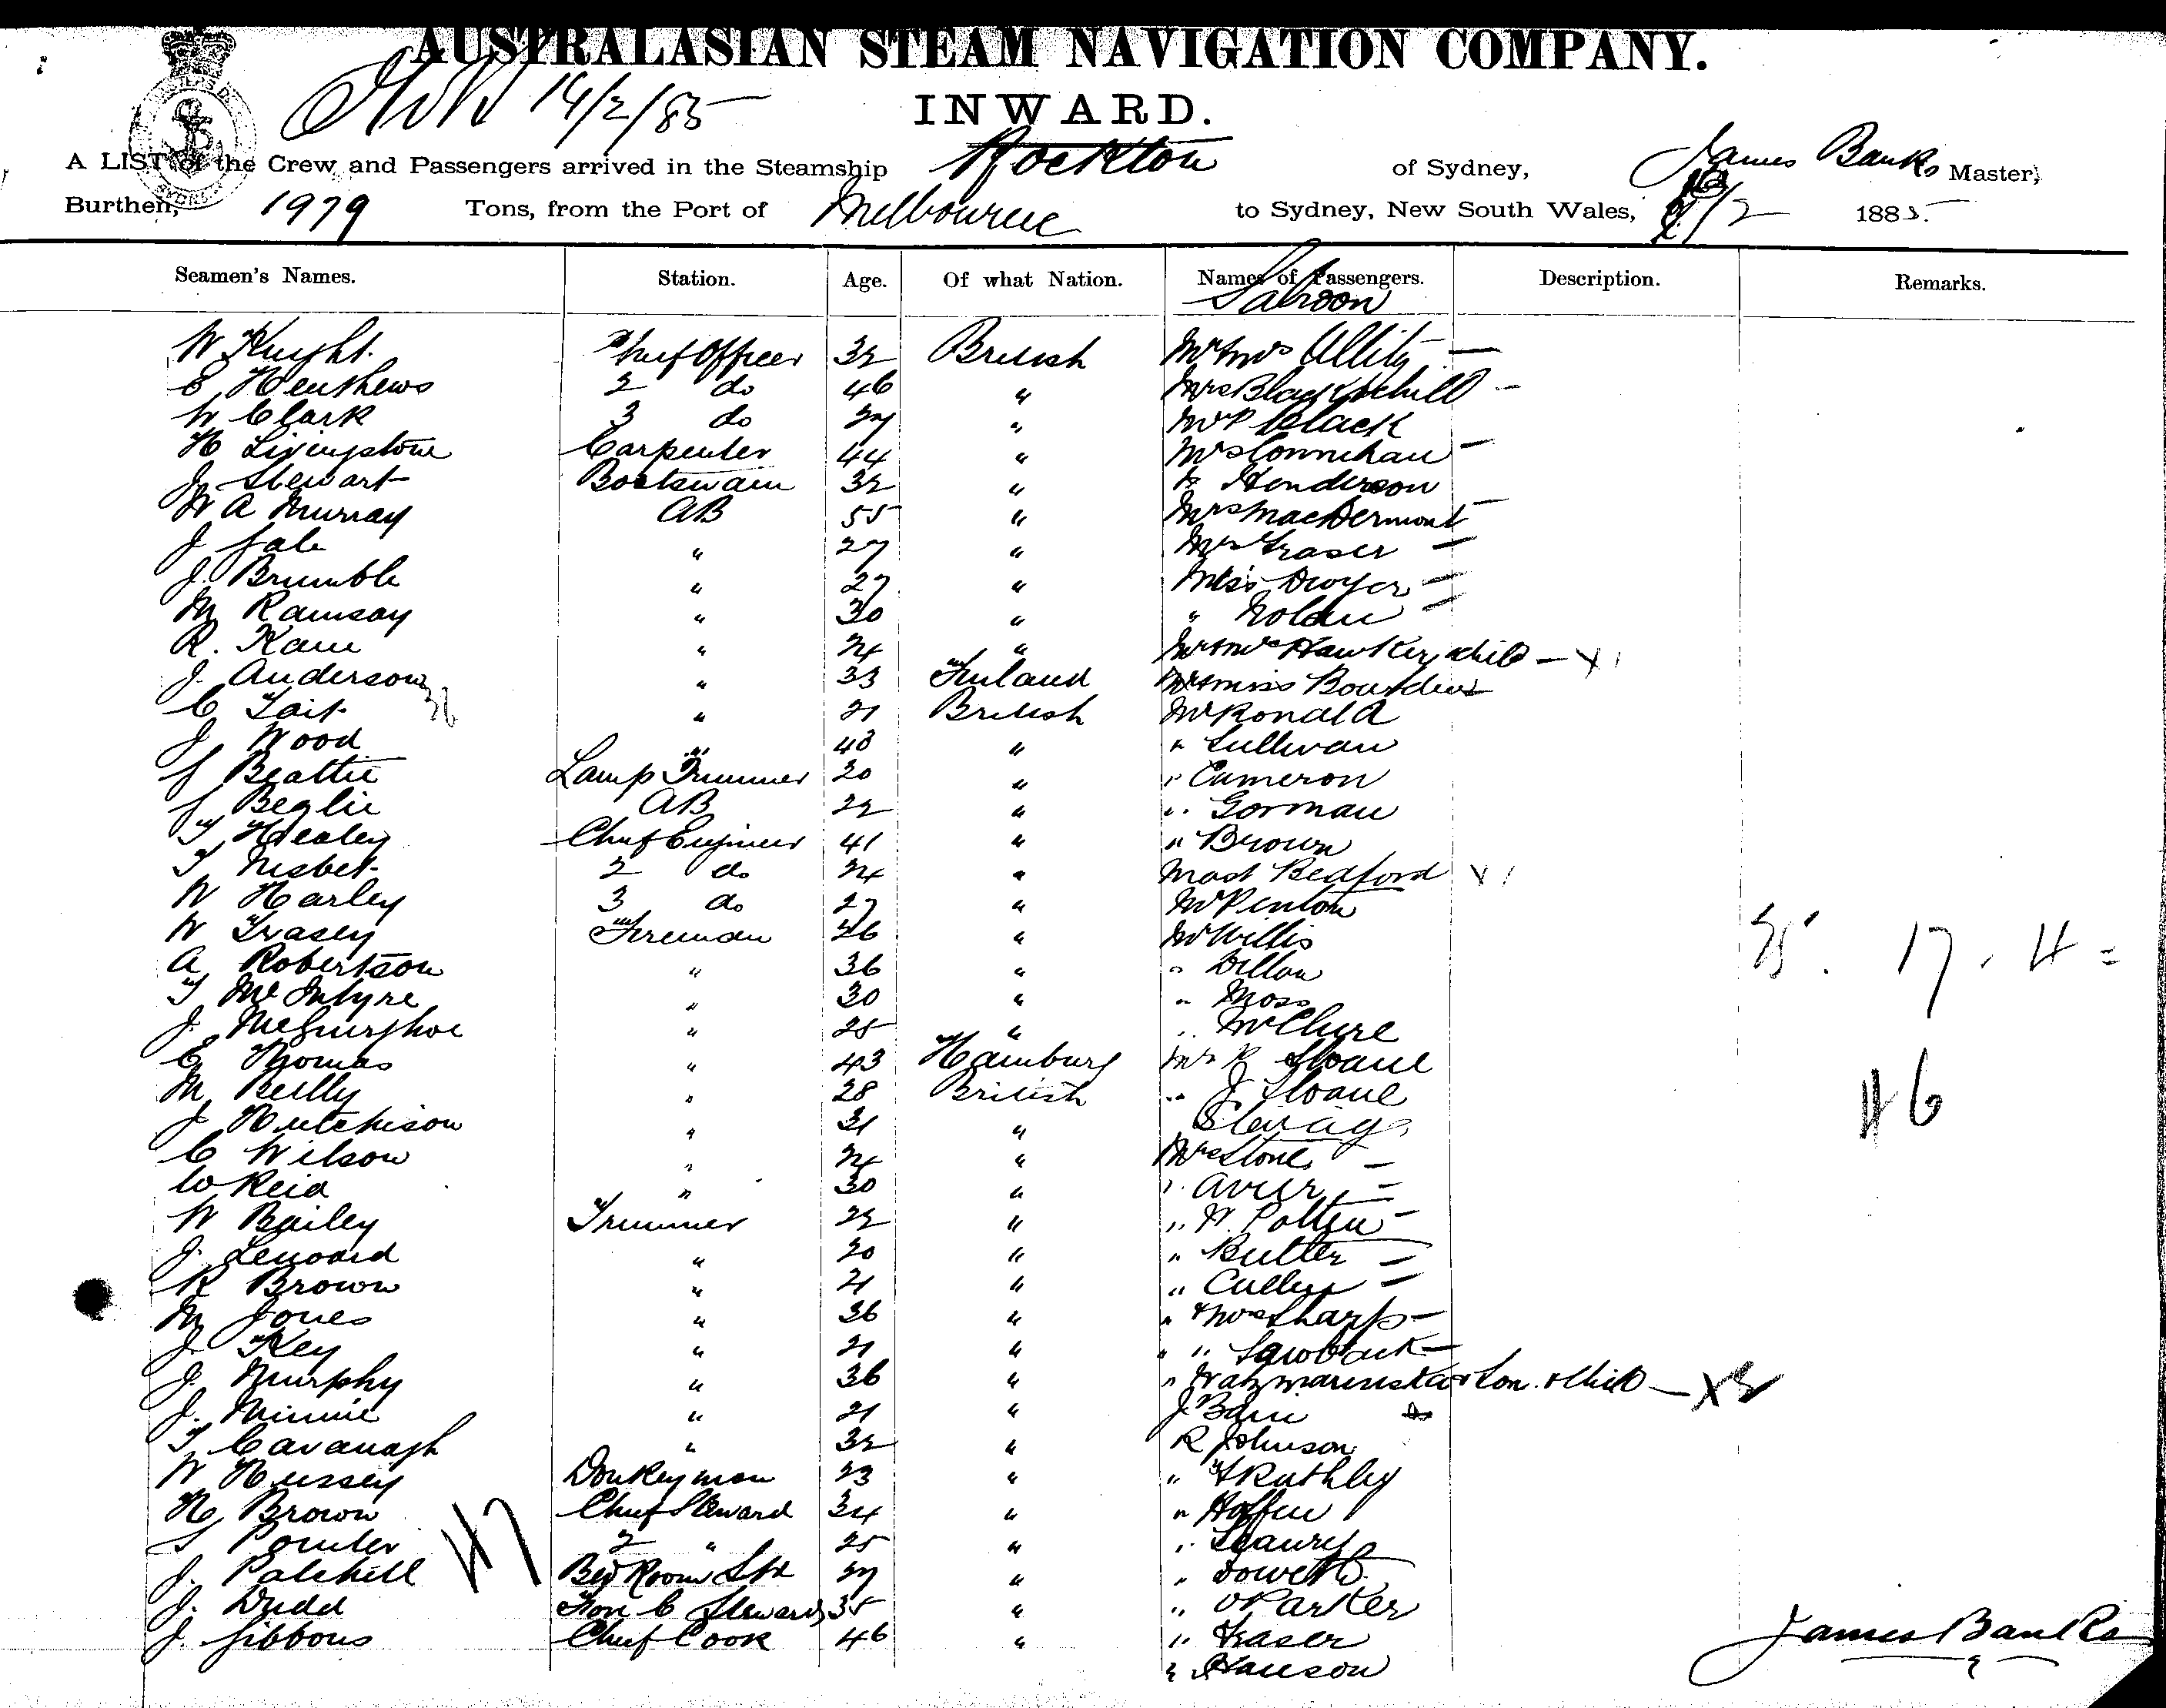 AUSTRALASIAN STEAM NAVIGATION COMPANY.
14/2/85
INWARD.
A LIST of the Crew and Passengers arrived in the Steamship Rockton of Sydney, James Banks Master,
Burthen, 1979 Tons, from the Port of Melbourne to Sydney, New South Wales, /2 1885.
Seamen's Names. Station. Age. Of what Nation. Names of Passengers. Description. Remarks.
Saloon
W Knight. Chief Officer 32 British Mr & Mrs
E Henshews 2 do 46 " Mrs
W Clark 3 do 27 " Mr P Black
H Livingstone Carpenter 44 " Mrs Connihan
J Stewart Boatswain 32 " " Henderson
W A Murray AB 55 " Mrs MacDermont
J Gale " 27 " Mrs Fraser
J. Brumble " 27 " Miss Dwyer
M Ramsay " 30 " " Nolan
R. Kane " 24 " Mr & Mrs Hawker, child - X 1
J. Anderson " 33 Finland Mr & Miss
C Tait " 21 British Mr Ronald
J Wood " 43 " " Sullivan
J Beattie Lamp Trimmer 20 " " Cameron
J Beglie AB 22 " " Gorman
T Healey Chief Engineer 41 " " Brown
T Nisbet 2 do 24 " Mast Bedford X 1
W Harley 3 do 27 " Mr Penton
W Trasey Fireman 26 " Mr Willis
A Robertson " 36 " " Dillon
T McIntyre " 30 " " Moss
J. " 25 " " McClure
C Thomas " 43 Hamburg Mr R Sloane
M Reilly " 28 British " J Sloane
J Hutchison " 31 " Steerage
C Wilson " 24 " Mrs Stone
W Reid " 30 " "
W Bailey Trimmer 22 " " W. Potten
J. Lenoard " 20 " " Butler
R Brown " 21 " " Cullen
M Jones " 36 " " & Mrs Sharp
J Key " 21 " " "
J. Murphy " 36 " " & Son & Child - X 2
J. Minnie " 21 " J Bain
T Cavanagh " 32 " R Johnson
W Hussey Donkeyman 23 " "
H Brown Chief Steward 34 " "
S Pointer 2 " 25 " "
J. Patehill Bed Room Std 27 " "
J. Dudd Fore C Steward 35 " " Parker
J. Gibbons Chief Cook 46 " " Fraser
" Hanson
17. 4 =
46
47
James Banks